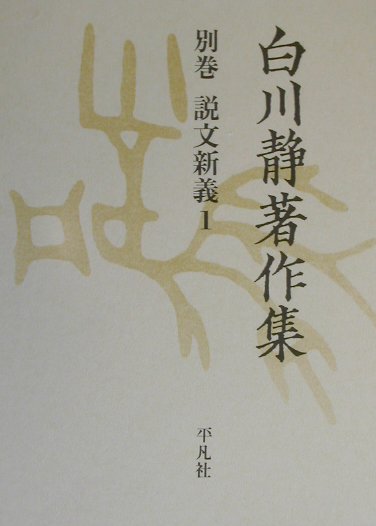 白川静著作集
別巻 説文新義1
平凡社